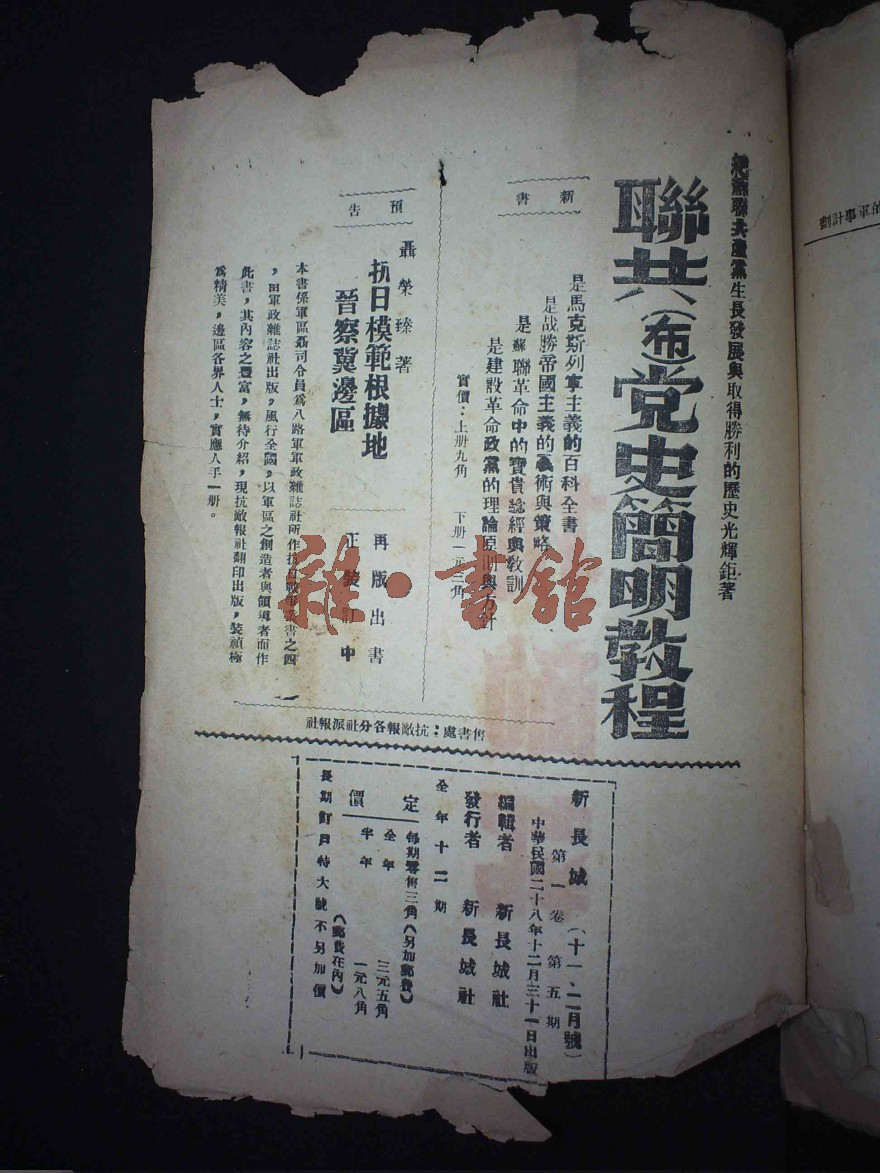 總蘇聯共產黨生長發展與取得勝利的歷史光輝鉅著
聯共(布)党史簡明教程
新書
是馬克斯列寧主義的百科全書
是战勝帝國主義的戰術與策略
是蘇聯革命中的寶貴經驗與敎訓
是建設革命政黨的理論原則與方針
實價：上册九角 下册一元三角
預告
聶榮臻著
抗日模範根據地
晉察冀邊區
再版出書
正裝訂中
本書係軍區聶司令員爲八路軍軍政雜誌社所作抗日戰爭叢書之四
，由軍政雜誌社出版，風行全國，以軍區之創造者與領導者而作
此書，其內容之豐富，無待介紹，現抗敵報社翻印出版，裝禎極
爲精美，邊區各界人士，實應人手一册。
售書處：抗敵報各分社派報社
新長城（十一、二月號）
第一卷 第五期
中華民國二十八年十二月三十一日出版
編輯者 新長城社
發行者 新長城社
全年十二期
定價
每期零售三角（另加郵費）
全年 三元五角
半年 一元八角
（郵費在內）
長期訂戶特大號不另加價
的軍事計劃
雜·書館